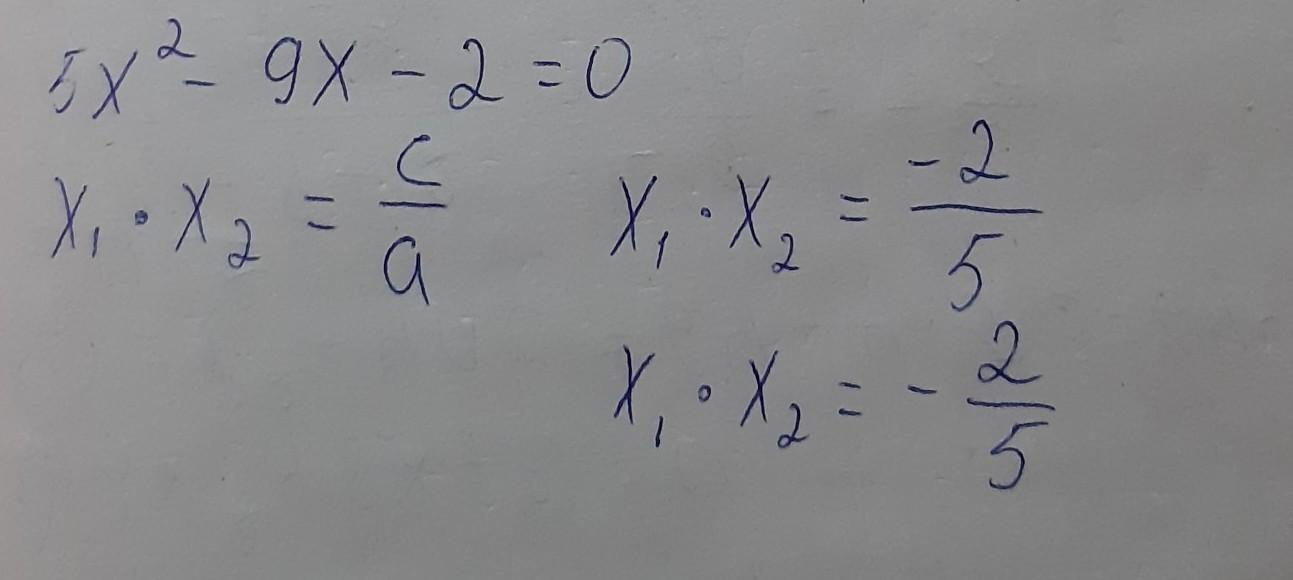 5x² - 9x - 2 = 0
x₁ · x₂ = c/a x₁ · x₂ = -2/5
x₁ · x₂ = - 2/5